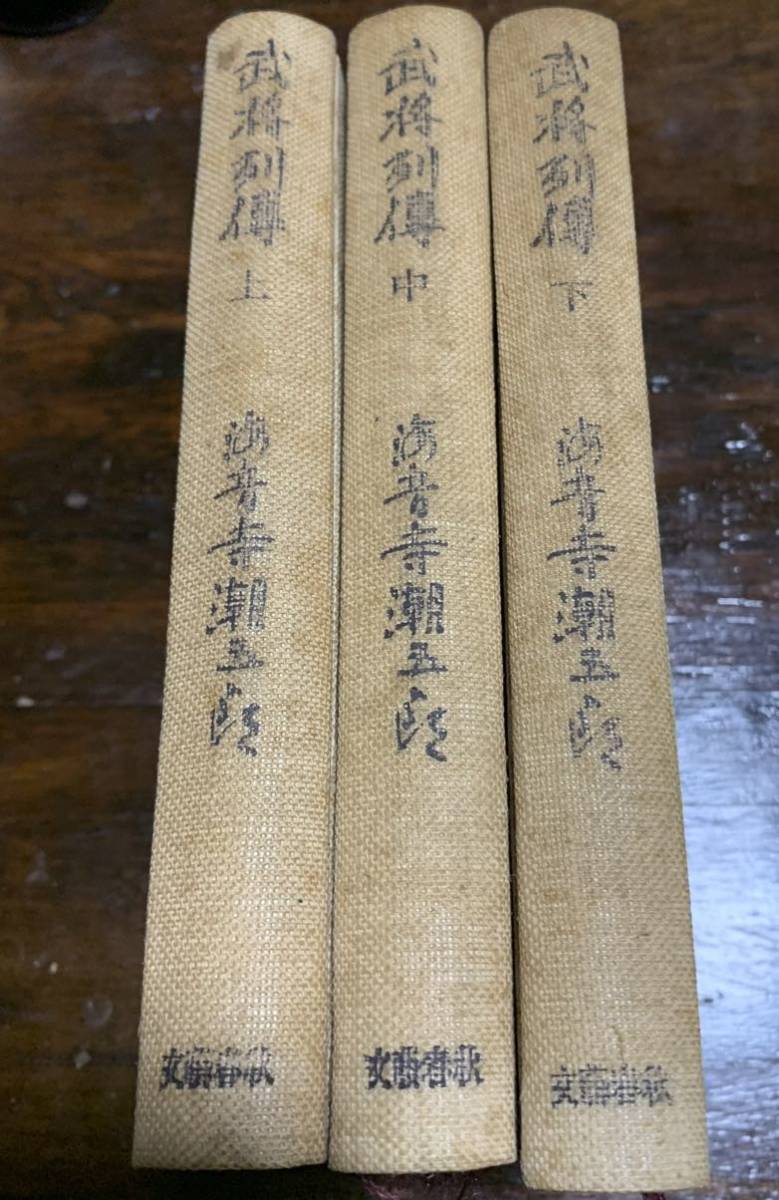 武将列傳 上
海音寺潮五郎
文藝春秋
武将列傳 中
海音寺潮五郎
文藝春秋
武将列傳 下
海音寺潮五郎
文藝春秋